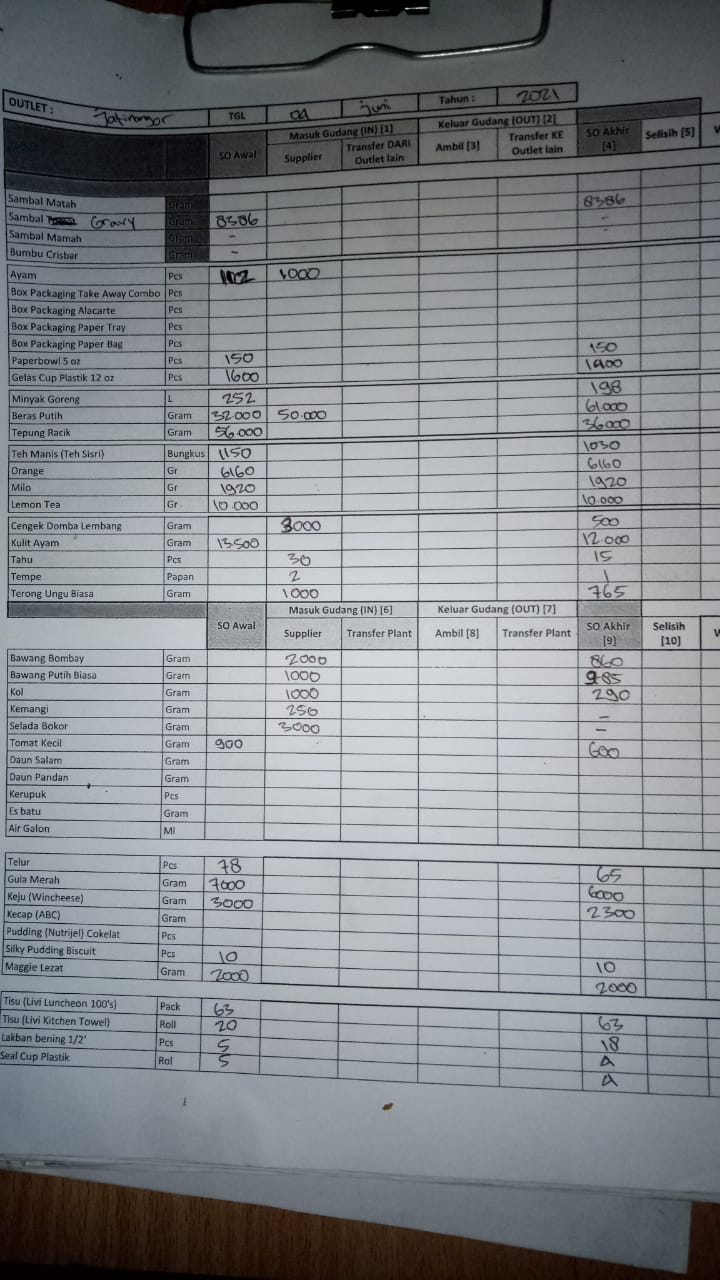 OUTLET : Jatinangor TGL 09 Juni Tahun : 2021
SO Awal Masuk Gudang (IN) [1] Keluar Gudang (OUT) [2] SO Akhir [4] Selisih [5]
Supplier Transfer DARI Outlet lain Ambil [3] Transfer KE Outlet lain
Sambal Matah Gram
Sambal Gravy Gram 8386 8386
Sambal Mamah Gram - -
Bumbu Crisbar Gram - -
Ayam Pcs 102 1000
Box Packaging Take Away Combo Pcs
Box Packaging Alacarte Pcs
Box Packaging Paper Tray Pcs
Box Packaging Paper Bag Pcs
Paperbowl 5 oz Pcs 150 150
Gelas Cup Plastik 12 oz Pcs 1600 1400
Minyak Goreng L 252 198
Beras Putih Gram 32000 50.000 61.000
Tepung Racik Gram 56.000 36000
Teh Manis (Teh Sisri) Bungkus 1150 1030
Orange Gr 6160 6160
Milo Gr 1920 1920
Lemon Tea Gr 10.000 10.000
Cengek Domba Lembang Gram 3000 500
Kulit Ayam Gram 13.500 12.000
Tahu Pcs 30 15
Tempe Papan 2 1
Terong Ungu Biasa Gram 1000 765
SO Awal Masuk Gudang (IN) [6] Keluar Gudang (OUT) [7] SO Akhir [9] Selisih [10]
Supplier Transfer Plant Ambil [8] Transfer Plant
Bawang Bombay Gram 2000 860
Bawang Putih Biasa Gram 1000 985
Kol Gram 1000 290
Kemangi Gram 250 -
Selada Bokor Gram 3000 -
Tomat Kecil Gram 900 600
Daun Salam Gram
Daun Pandan Gram
Kerupuk Pcs
Es batu Gram
Air Galon Ml
Telur Pcs 78 65
Gula Merah Gram 7000 6000
Keju (Wincheese) Gram 3000 2300
Kecap (ABC) Gram
Pudding (Nutrijel) Cokelat Pcs
Silky Pudding Biscuit Pcs 10 10
Maggie Lezat Gram 2000 2000
Tisu (Livi Luncheon 100's) Pack 63 63
Tisu (Livi Kitchen Towel) Roll 20 18
Lakban bening 1/2' Pcs 5 4
Seal Cup Plastik Rol 5 4